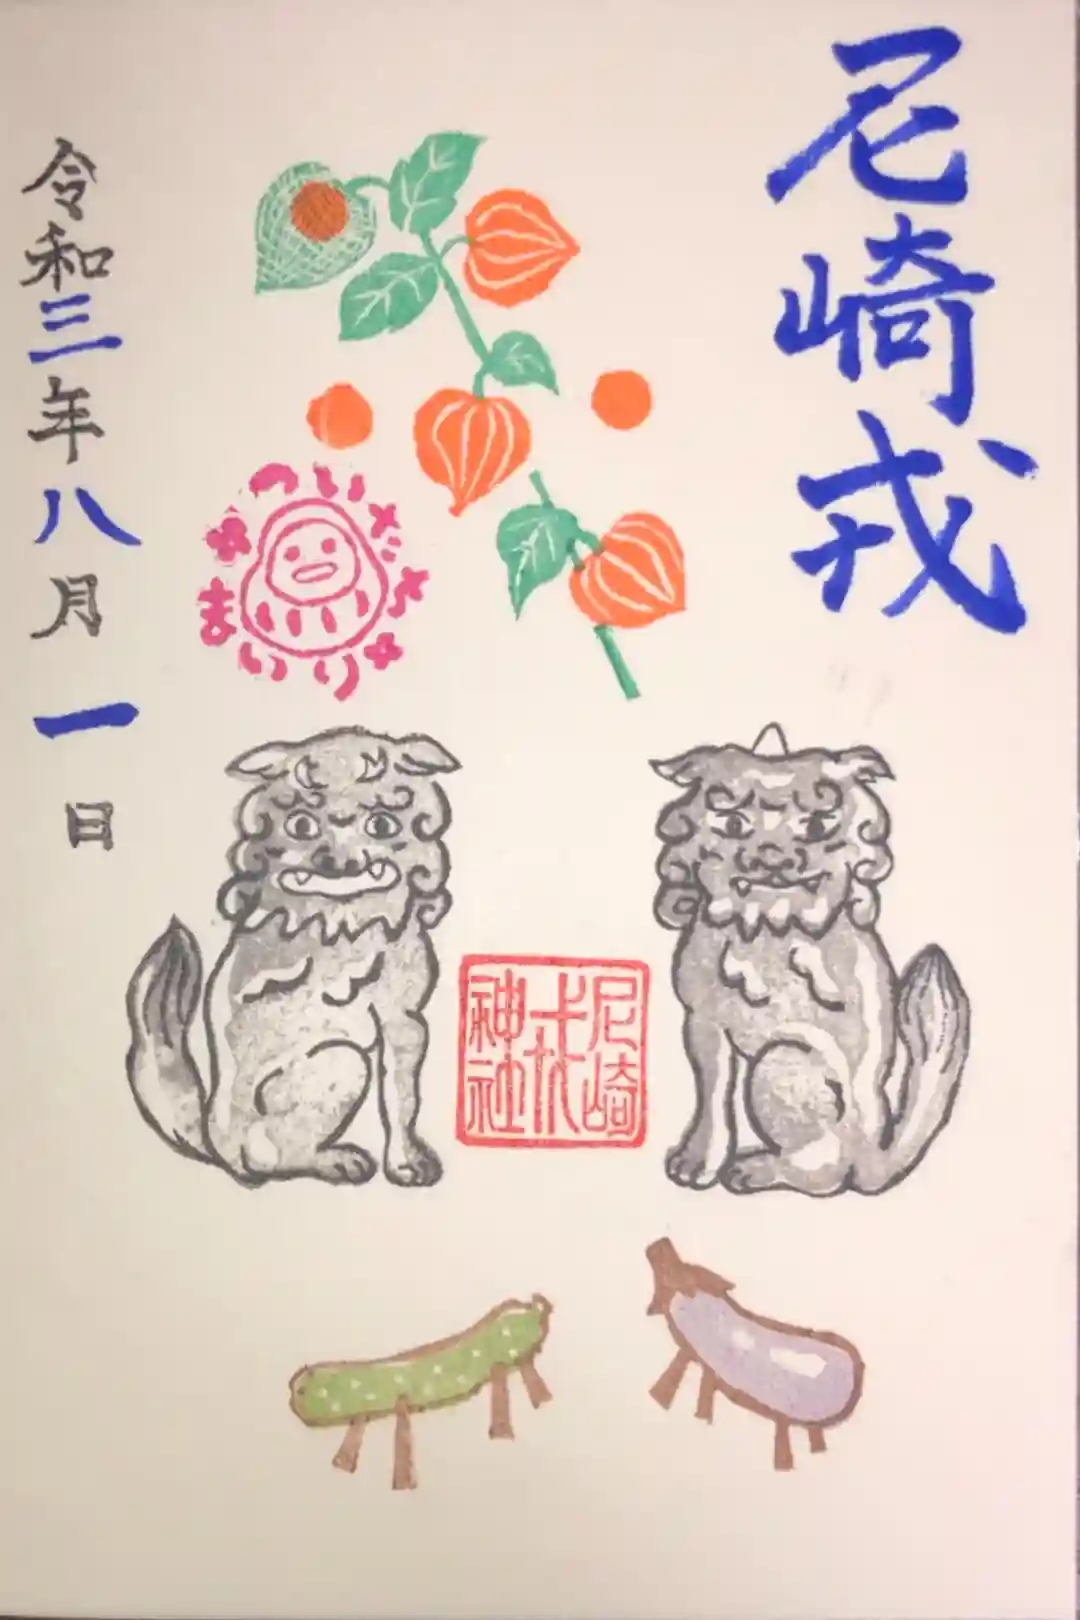 尼崎戎
つい
まいり
尼崎
戎
神社
令和三年八月一日